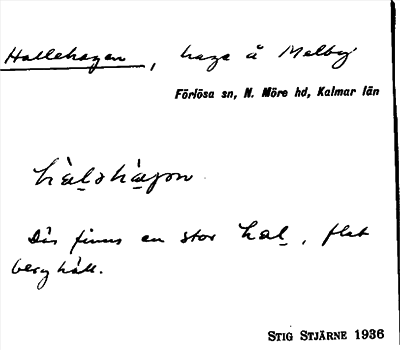 Hallehagen, hage å Melby
Förlösa sn, N. Möre hd, Kalmar län
hàl̠əhàgon
Där finns en stor hal̠, flat
berghäll.
STIG STJÄRNE 1936